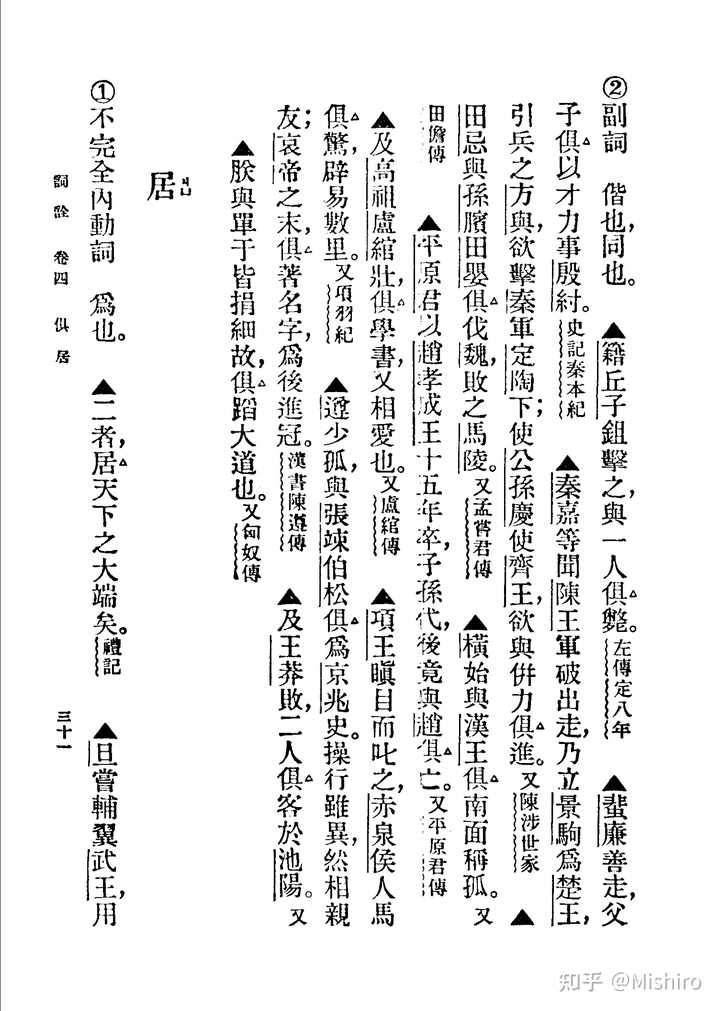 ②副詞　偕也，同也。　▲籍丘子鉏擊之，與一人俱斃。左傳定八年　▲蜚廉善走，父
子俱以才力事殷紂。史記秦本紀　▲秦嘉等聞陳王軍破出走，乃立景駒爲楚王，
引兵之方與，欲擊秦軍定陶下；使公孫慶使齊王，欲與併力俱進。又陳涉世家　▲
田忌與孫臏田嬰俱伐魏，敗之馬陵。又孟嘗君傳　▲橫始與漢王俱南面稱孤。又
田儋傳　▲平原君以趙孝成王十五年卒，子孫代，後竟與趙俱亡。又平原君傳
▲及高祖盧綰壯，俱學書，又相愛也。又盧綰傳　▲項王瞋目而叱之，赤泉侯人馬
俱驚，辟易數里。又項羽紀　▲遵少孤，與張竦伯松俱爲京兆史。操行雖異，然相親
友；哀帝之末，俱著名字，爲後進冠。漢書陳遵傳　▲及王莽敗，二人俱客於池陽。又
▲朕與單于皆捐細故，俱蹈大道也。又匈奴傳
居ㄐㄩ
①不完全內動詞　爲也。　▲二者，居天下之大端矣。禮記　▲旦嘗輔翼武王，用
詞詮　卷四　俱居
三十一
知乎 @Mishiro